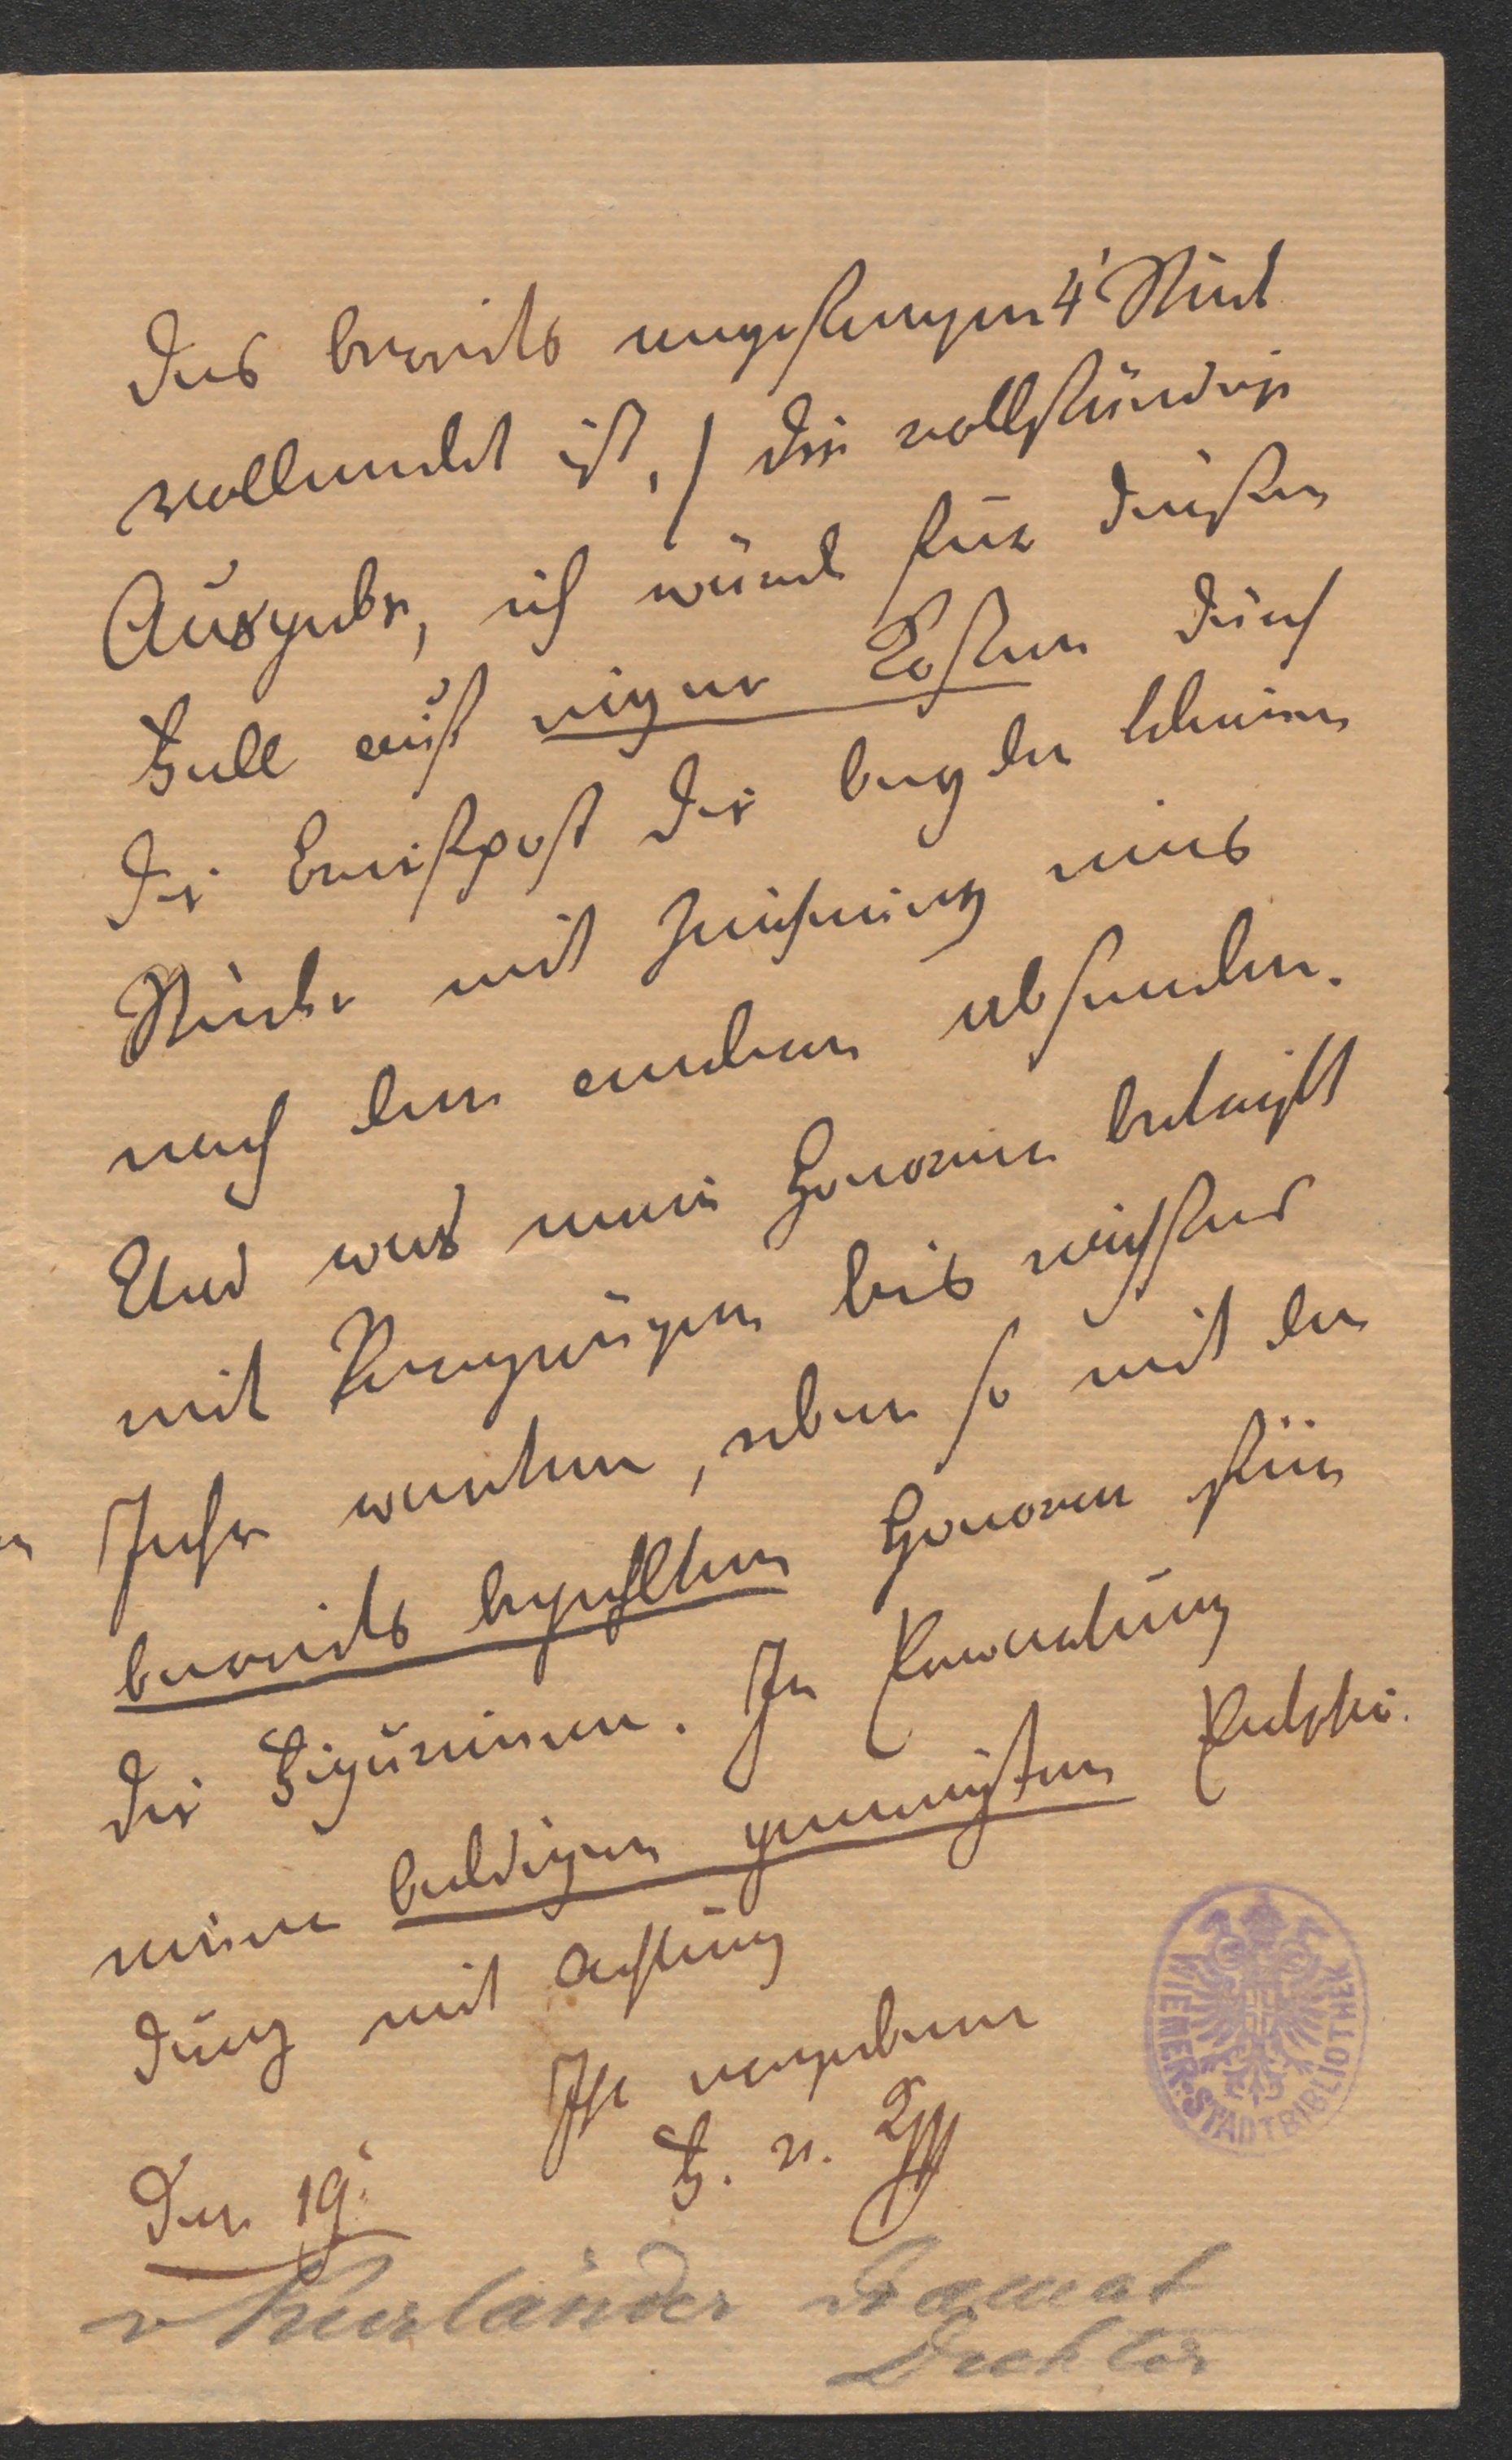 das bereits angefangene 4' Stück
vollendet ist,/ die vollständige
Ausgabe, ich würde für diesen
Fall auf eigene Kosten durch
die Briefpost die beyden kleinen
Stücke mit Zeichnung eins
nach dem andern absenden.
Und was mein Honorar betrifft
mit Vergnügen bis nächstes
Jahr warten, eben so mit dem
bereits bezahlten Honorar für
die Figurinen. In Erwartung
einer baldigen geneigten Entschei
dung mit Achtung
Ihr ergebener
F. v. K
Den 19'
v Kurländer Dramat
Dichter
WIENER STADTBIBLIOTHEK